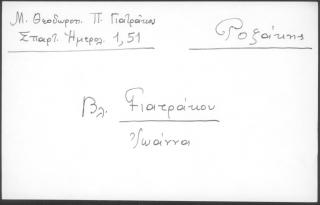 Μ. Θεοδωροπ. Π. Γιατράκου
Σπαρτ. Ἡμερολ. 1,51
Ροζάκης
Βλ. Γιατράκου
Ἰωάννα